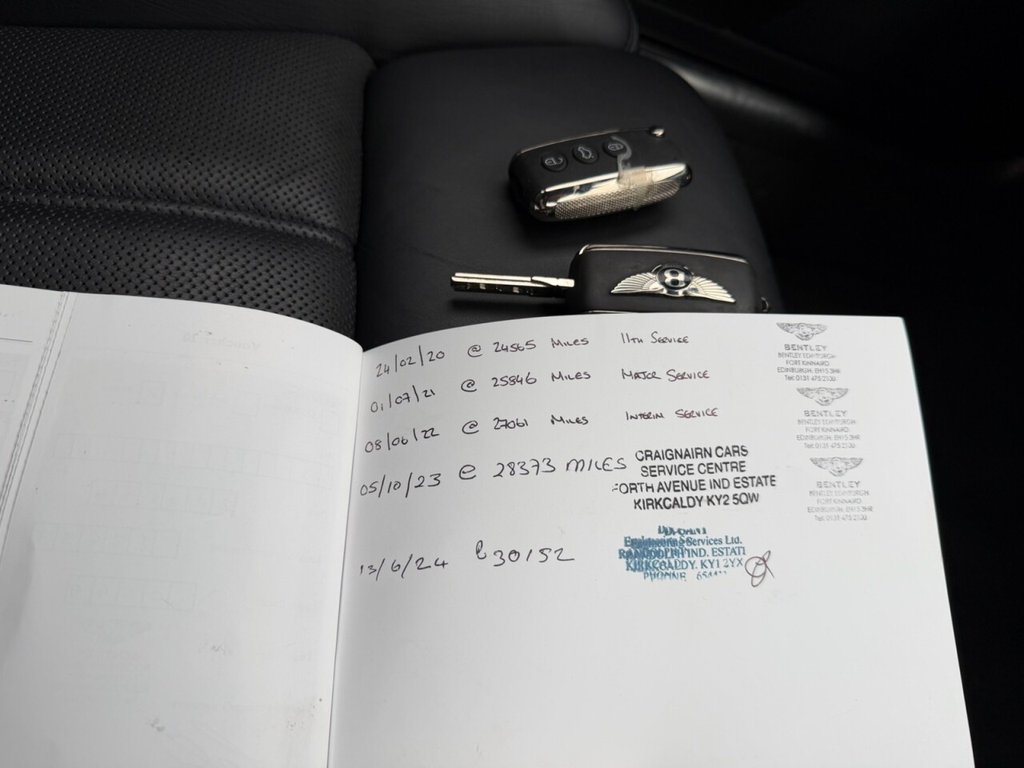 24/02/20 @ 24565 MILES 11TH SERVICE
01/07/21 @ 25846 MILES MAJOR SERVICE
08/06/22 @ 27061 MILES INTERIM SERVICE
05/10/23 @ 28373 MILES
13/6/24 @ 30152
CRAIGNAIRN CARS
SERVICE CENTRE
FORTH AVENUE IND ESTATE
KIRKCALDY KY2 5QW
Engineering Services Ltd.
RANDOLPH IND. ESTATE
KIRKCALDY. KY1 2YX
PHONE
BENTLEY
BENTLEY EDINBURGH
FORT KINNAIRD
EDINBURGH, EH15 3HR
Tel: 0131 475 2100
BENTLEY
BENTLEY EDINBURGH
FORT KINNAIRD
EDINBURGH, EH15 3HR
Tel: 0131 475 2100
BENTLEY
BENTLEY EDINBURGH
FORT KINNAIRD
EDINBURGH, EH15 3HR
Tel: 0131 475 2100
B